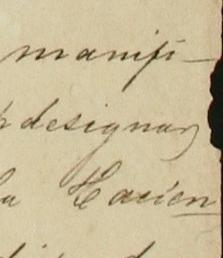 manifi-
designar
la Hacien